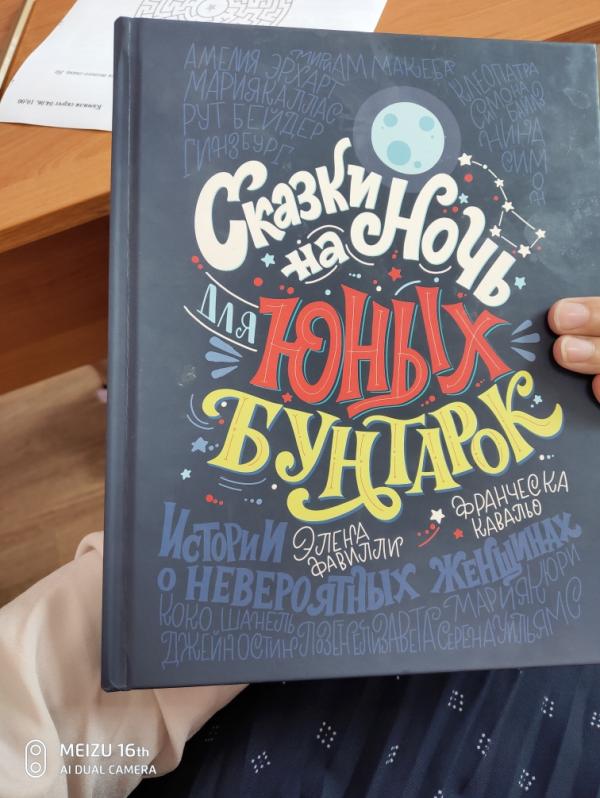 Камила скрут 04.06, 19.00
АМЕЛИЯ ЭРХАРТ
МИРИАМ МАКЕБА
МАРИЯ КАЛЛАС
РУТ БЕЙДЕР
ГИНЗБУРГ
КЛЕОПАТРА
НИНА
СИМОН
Сказки
на Ночь
для
Юных
Бунтарок
Истории
Элена
Фавилли
Франческа
Кавалло
о невероятных женщинах
КОКО ШАНЕЛЬ
МАРИЯ КЮРИ
ДЖЕЙН ОСТИН
ЕЛИЗАВЕТА
СЕРЕНА УИЛЬЯМС
MEIZU 16th
AI DUAL CAMERA